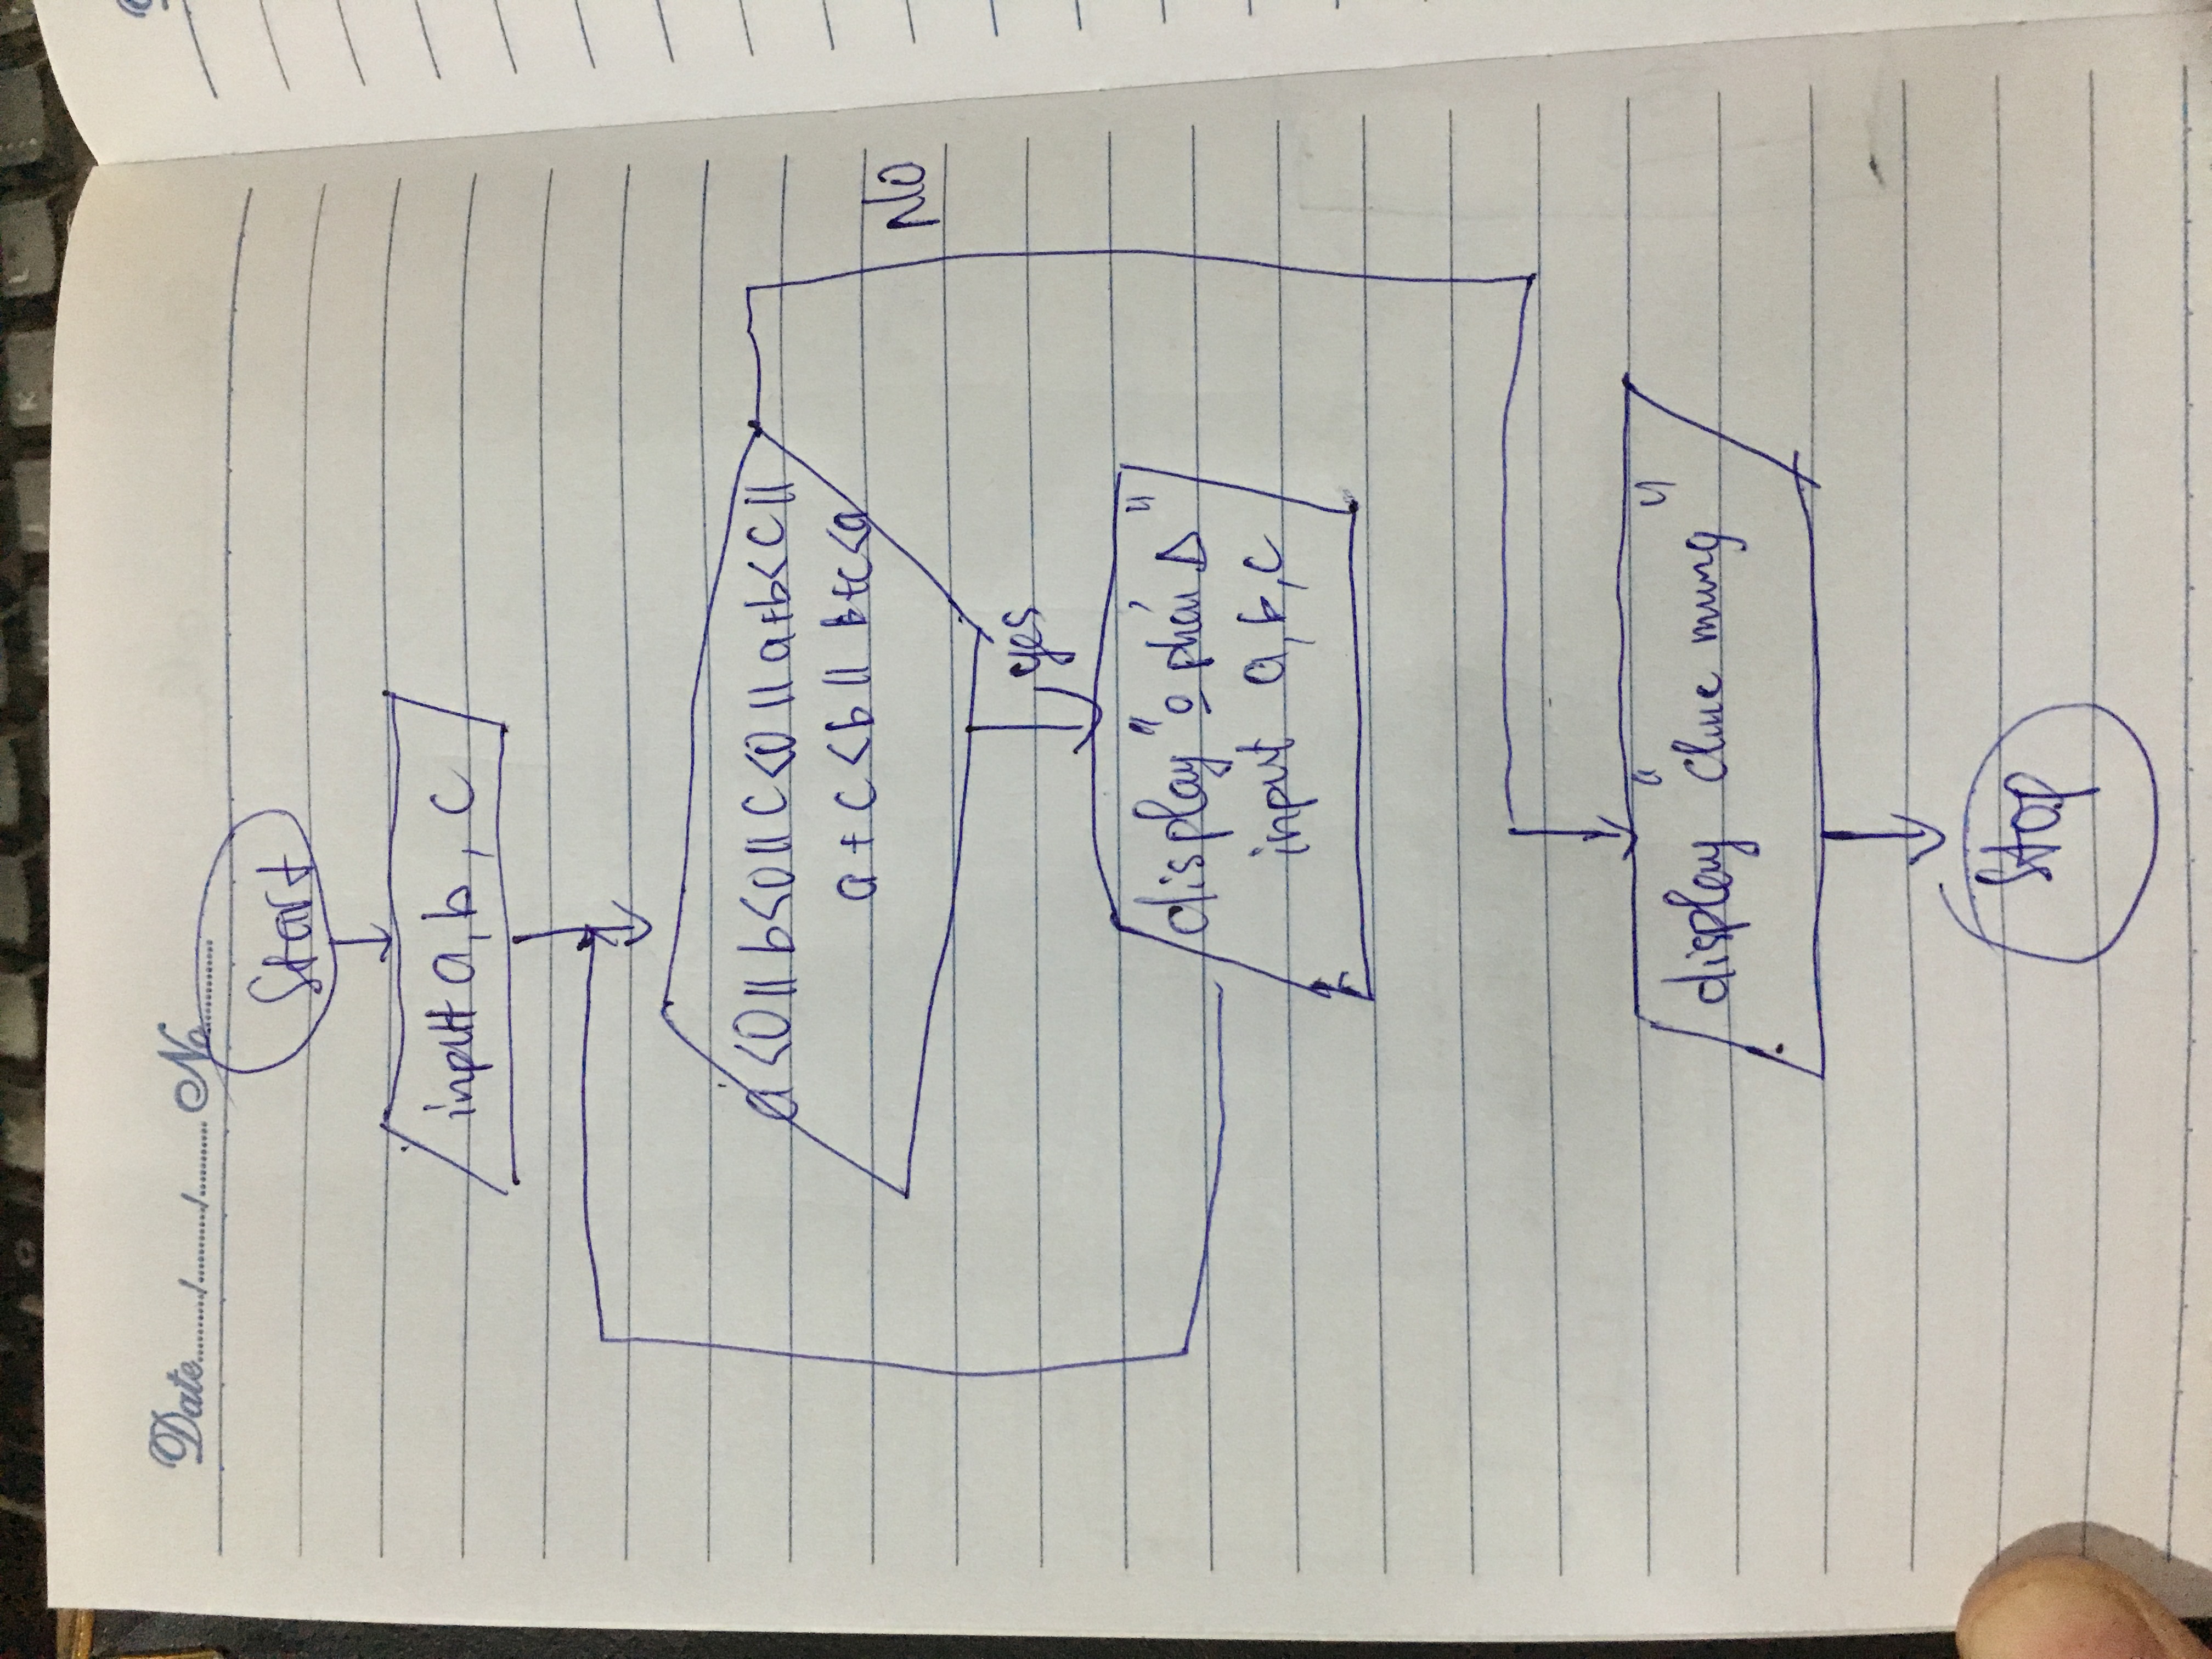 Date......../......../........ No..........
Start
input a, b, c
a<0 || b<0 || c<0 || a+b<c ||
a+c<b || b+c<a
NO
yes
display "o phải Δ"
input a, b, c
display "Chuc mung"
Stop